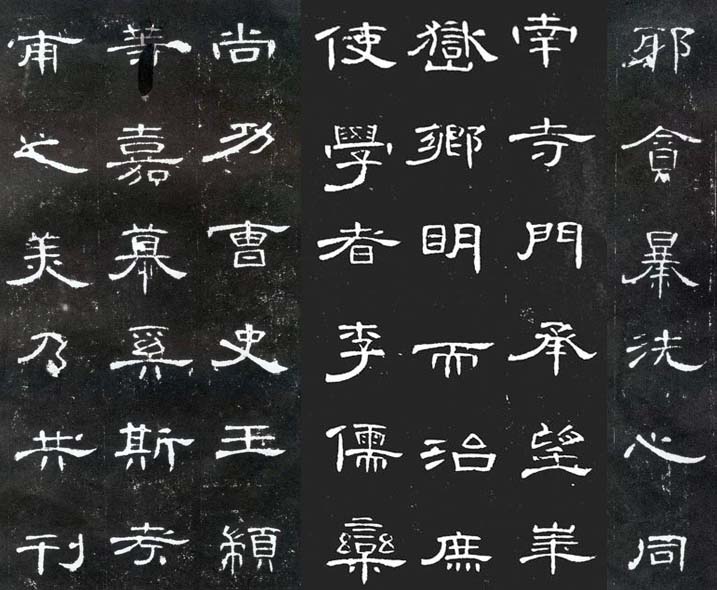 邪貪暴洗心同
幸寺門承望崋
嶽鄉明而治庶
使學者李儒欒
尚功曹史王顓
等嘉慕奚斯考
甫之美乃共刊